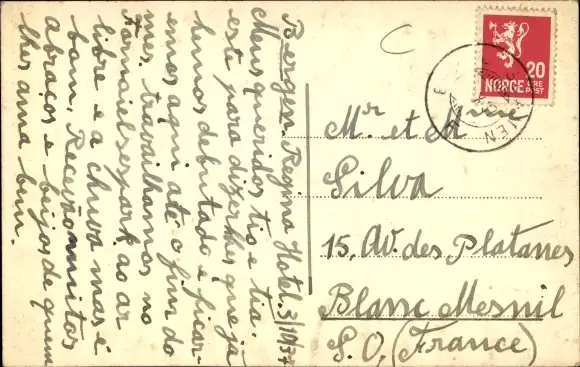 Bergen. Regina Hotel. 3/10/37
Meus queridos tio e tia.
este para dizerlhes que já
temos debutado e ficar-
emos aqui até o fim do
mes, travalhamos no
ao ar
libre e a chuva mas é
bom, Receväo muitos
abraços e beijos de quem
lhes ama bem.
NORGE 20
ØRE
POST
Mr et Mme
Silva
15, Av. des Platanes
Blanc Mesnil
S. O. (France)